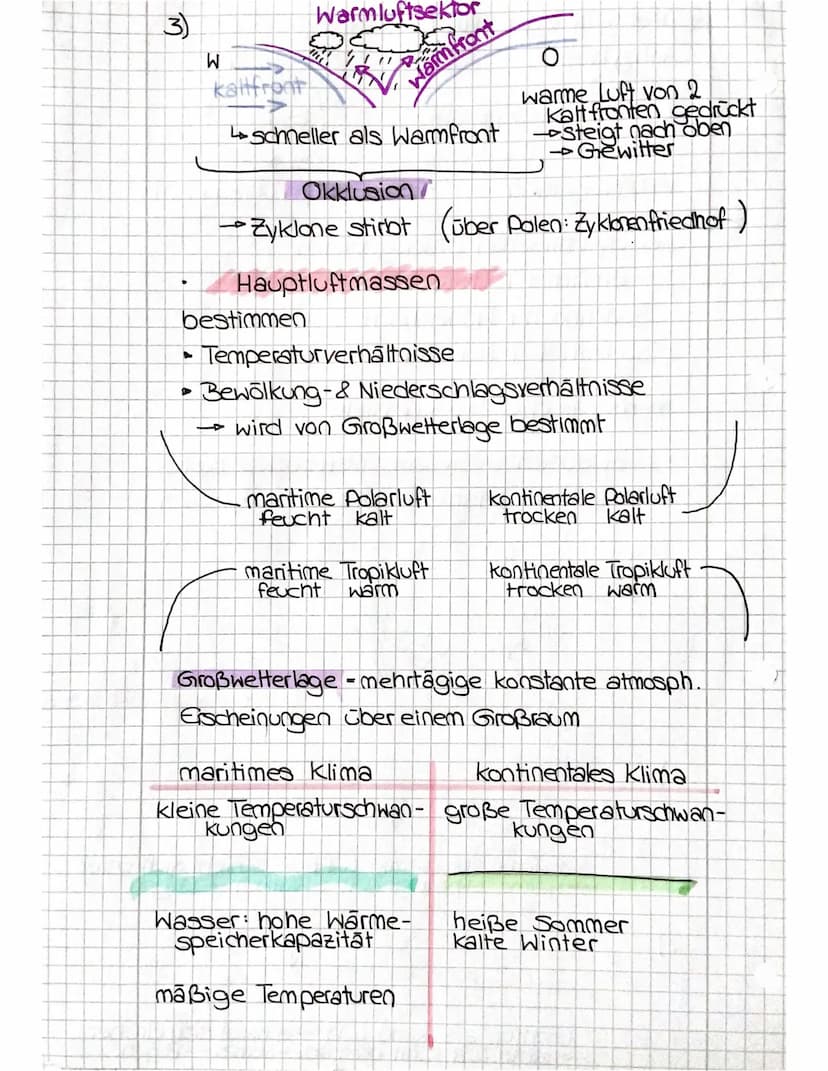 3)
Warmluftsektor
Warmfront
W
O
Kaltfront
warme Luft von 2
Kaltfronten gedrückt
→ steigt nach oben
→ Gewitter
↳ schneller als Warmfront
Okklusion
→ Zyklone stirbt (über Polen: Zyklonenfriedhof)
· Hauptluftmassen
bestimmen
▸ Temperaturverhältnisse
▸ Bewölkung- & Niederschlagsverhältnisse
→ wird von Großwetterlage bestimmt
maritime Polarluft
feucht kalt
kontinentale Polarluft
trocken kalt
maritime Tropikluft
feucht warm
kontinentale Tropikluft
trocken warm
Großwetterlage - mehrtägige konstante atmosph.
Erscheinungen über einem Großraum
maritimes Klima
kleine Temperaturschwan-
kungen
Wasser: hohe Wärme-
speicherkapazität
mäßige Temperaturen
kontinentales Klima
große Temperaturschwan-
kungen
heiße Sommer
kalte Winter